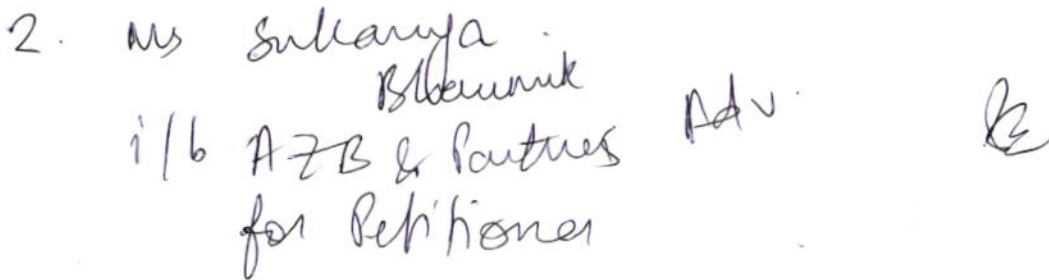 2. Ms Sukanya
Bhaumik
i/b AZB & Partners Adv.
for Petitioner